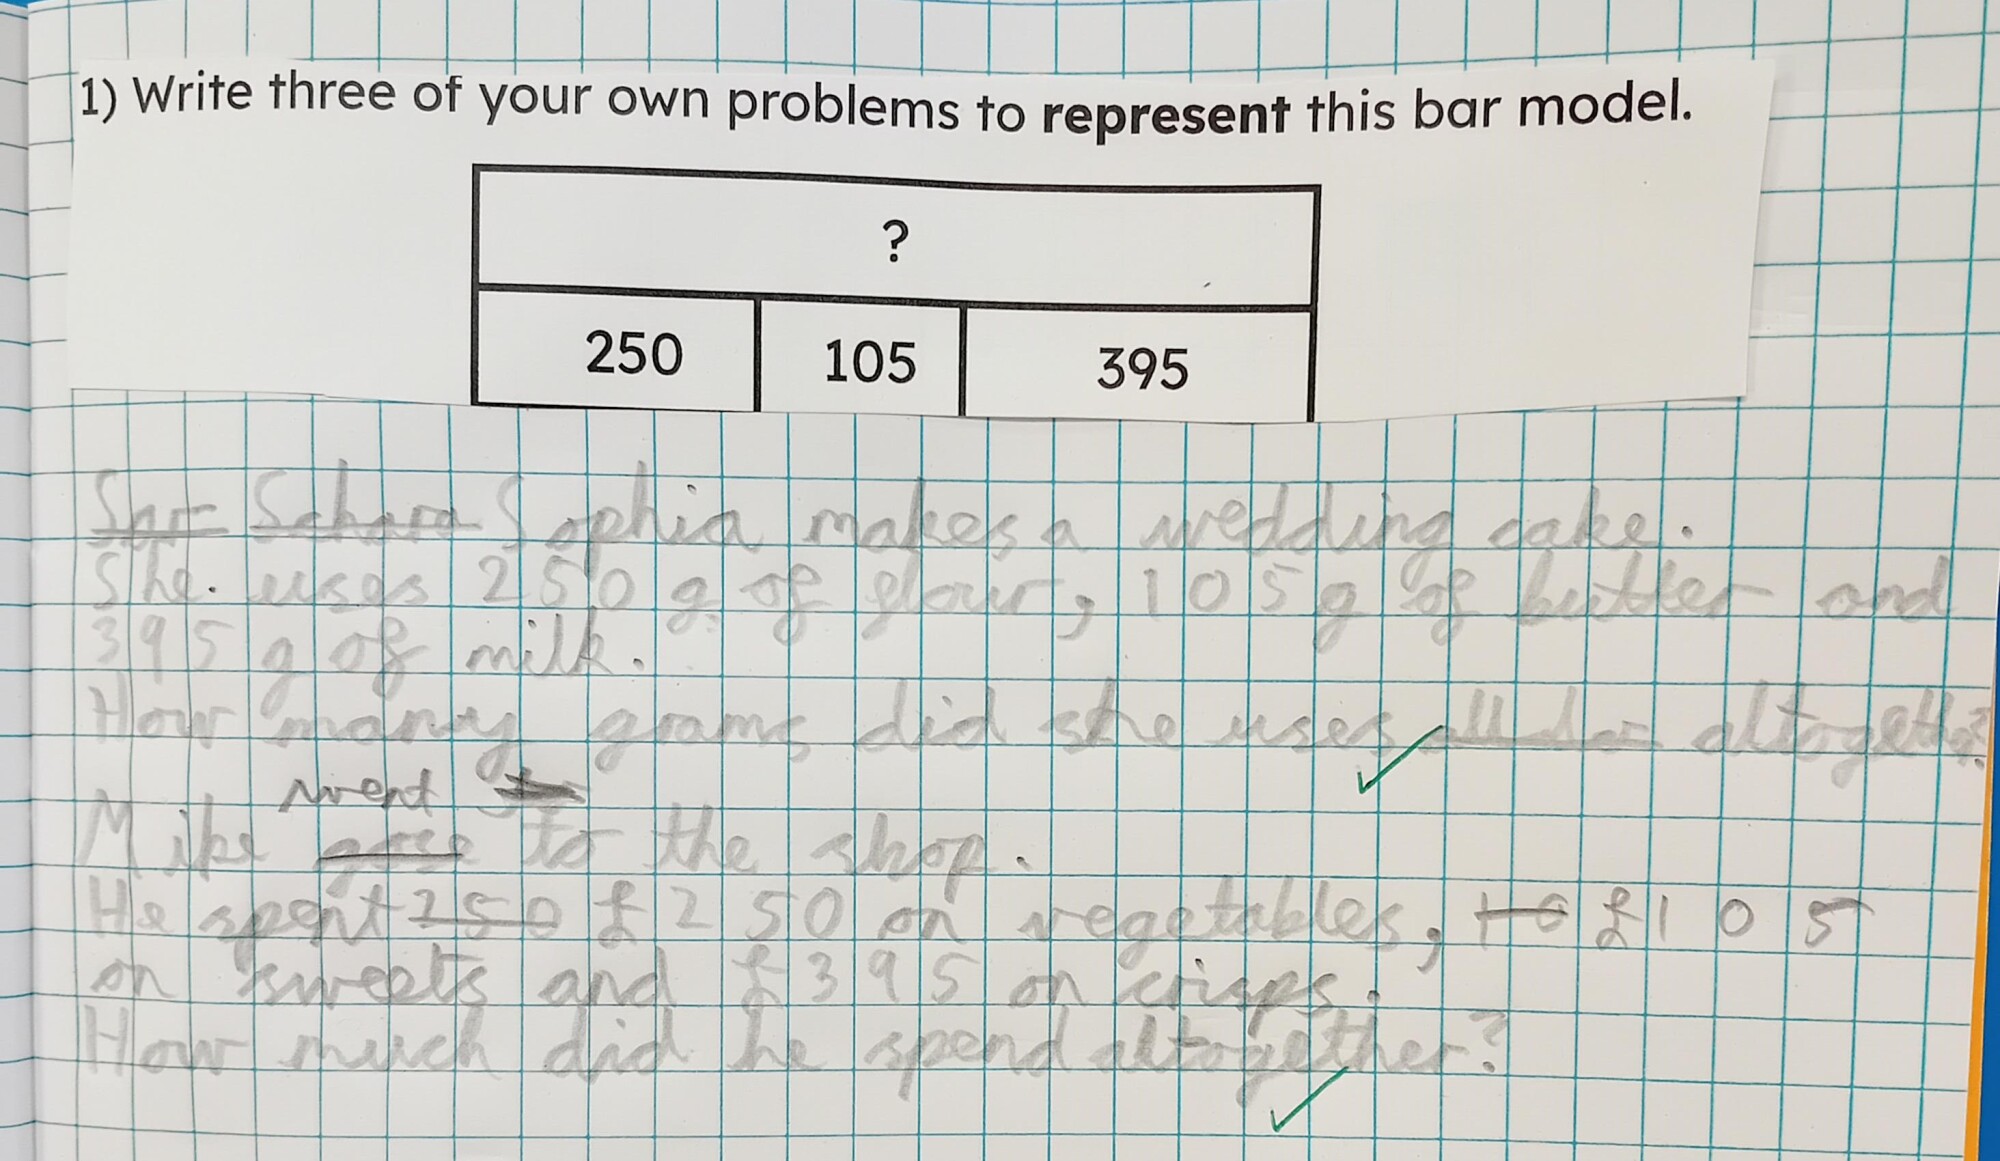 1) Write three of your own problems to represent this bar model.
?
250 105 395
Sar Schara Sophia makes a wedding cake.
She uses 250 g of flour, 105 g of butter and
395 g of milk.
How many grams did she uses altogether?
went
Mike gose to the shop.
He spent 250 £250 on vegetables, 10 £105
on sweets and £395 on crisps.
How much did he spend altogether?